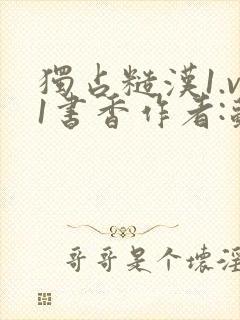 獨占糙漢1.v
1書香作者:
哥哥是个壞淫